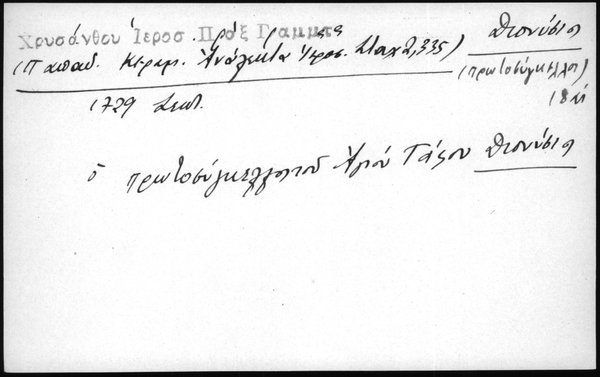 Χρυσάνθου Ἱεροσ. Πράξ Γραμμτ
Διονύσιος
(Παπαδ. Κεραμ. Ἀνάλεκτα Ἱεροσ. Σταχ 2,335)
(πρωτοσύγκελλος)
18 αἰ
1729 Σεπτ.
ὁ πρωτοσύγκελλος τοῦ Ἁγίου Τάφου Διονύσιος